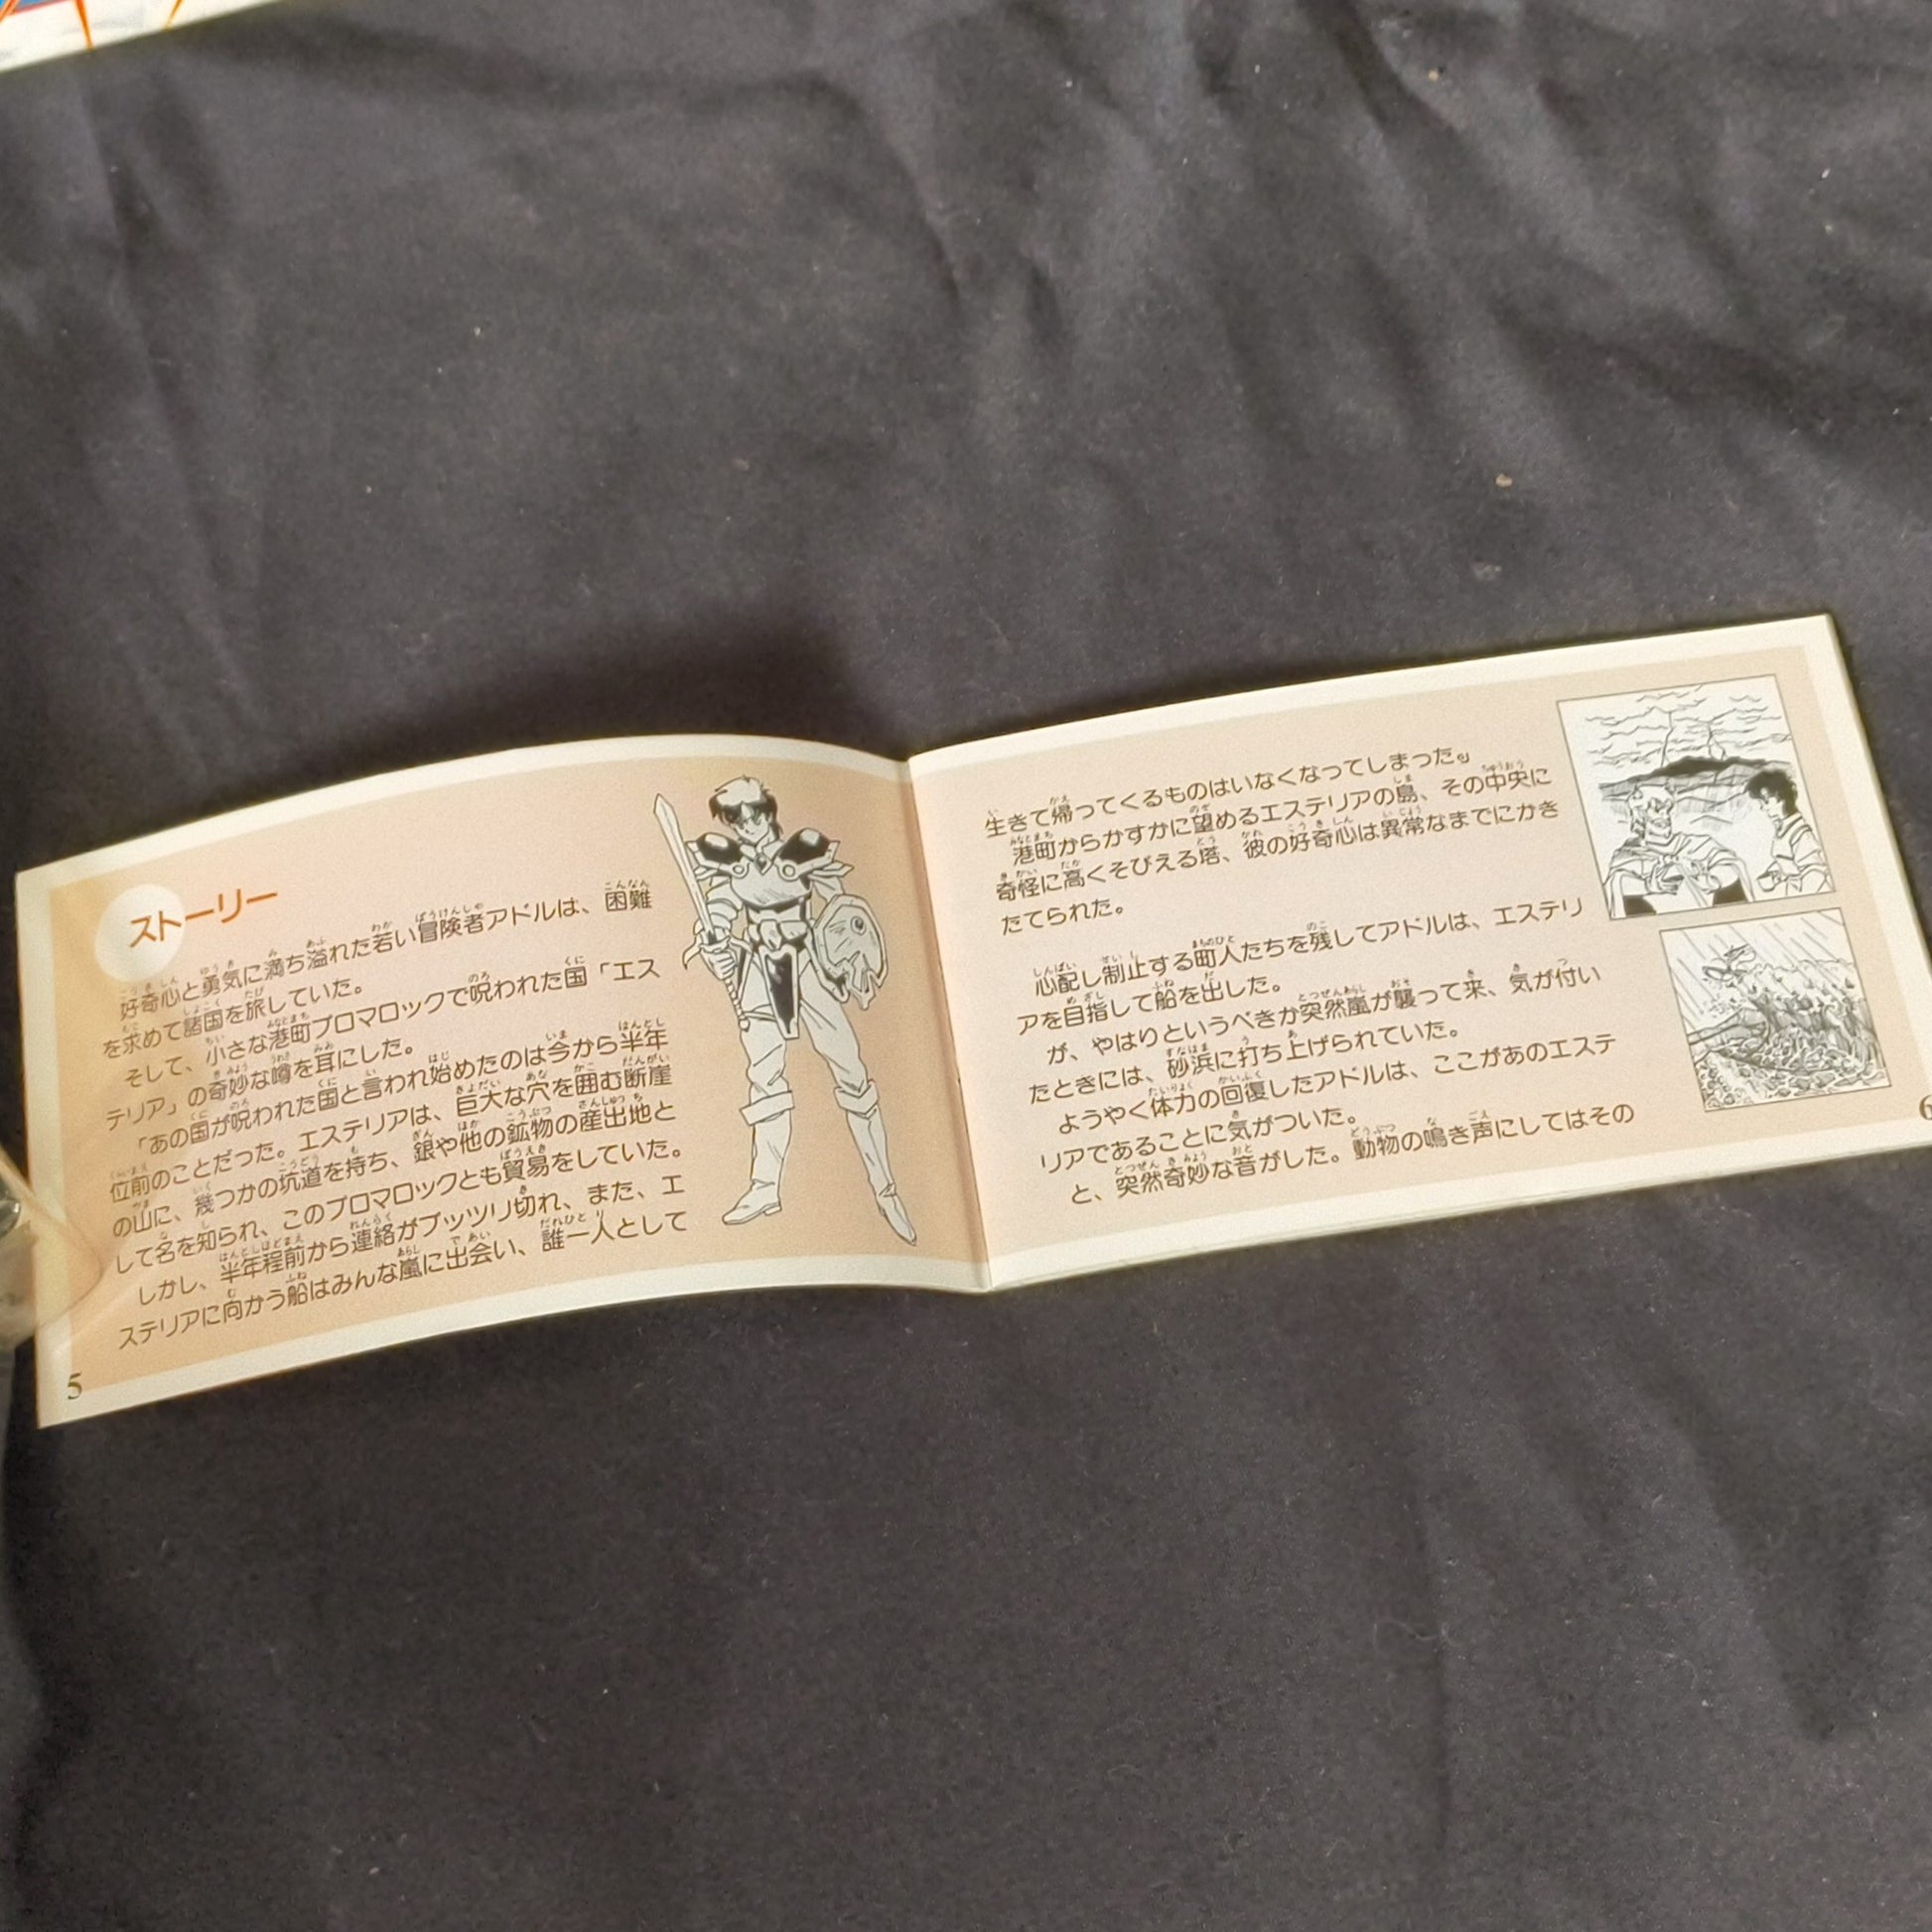 ストーリー
好奇心と勇気に満ち溢れた若い冒険者アドルは、困難
を求めて諸国を旅していた。
そして、小さな港町プロマロックで呪われた国「エス
テリア」の奇妙な噂を耳にした。
「あの国が呪われた国と言われ始めたのは今から半年
位前のことだった。エステリアは、巨大な穴を囲む断崖
の山に、幾つかの坑道を持ち、銀や他の鉱物の産出地と
して名を知られ、このプロマロックとも貿易をしていた。
しかし、半年程前から連絡がプッツリ切れ、また、エ
ステリアに向かう船はみんな嵐に出会い、誰一人として
5
生きて帰ってくるものはいなくなってしまった。」
港町からかすかに望めるエステリアの島、その中央に
奇怪に高くそびえる塔、彼の好奇心は異常なまでにかき
たてられた。
心配し制止する町人たちを残してアドルは、エステリ
アを目指して船を出した。
が、やはりというべきか突然嵐が襲って来、気が付い
たときには、砂浜に打ち上げられていた。
ようやく体力の回復したアドルは、ここがあのエステ
リアであることに気がついた。
と、突然奇妙な音がした。動物の鳴き声にしてはその
6